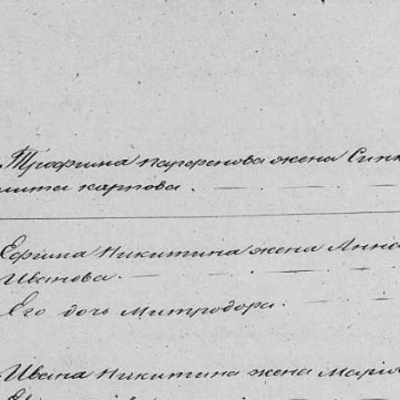 Трофима Парфенова жена Син
Карпова
Ефима Никитина жена Анна
Иванова
Его дочь Митродора
Ивана Никитина жена Марія